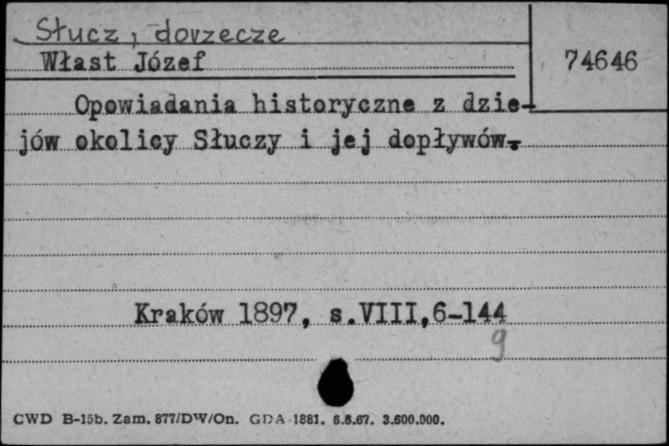 Słucz, dorzecze
Włast Józef
74646
Opowiadania historyczne z dzie-
jów okolicy Słuczy i jej dopływów.
Kraków 1897, s.VIII,6-144
9
CWD B-15b. Zam. 877/DW/On. GDA-1881. 6.6.67. 3.600.000.